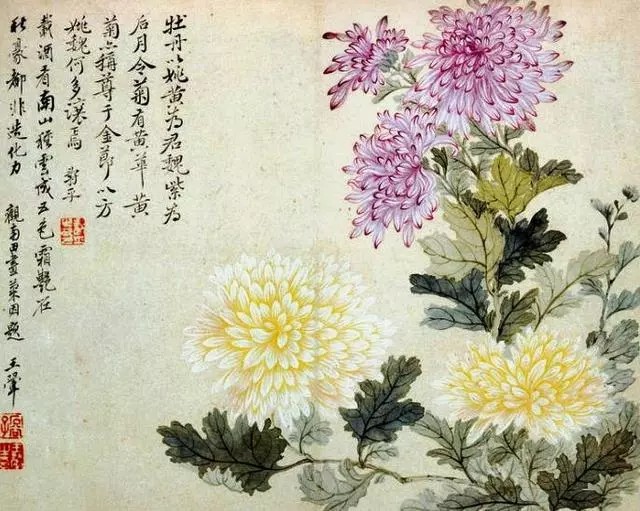 牡丹以姚黄為君魏紫為
后月令菊有黄華黄
菊亦稱尊于金節以方
姚魏何多讓焉 壽平
載酒看南山種雲成五色霜艷在
秋豪都非造化力 觀南田畫菊因題 王翬